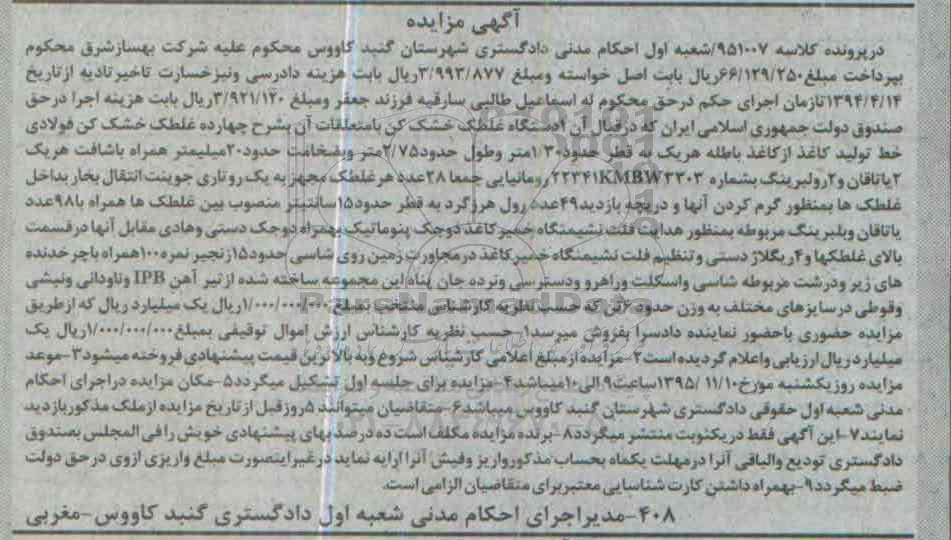 آگهی مزایده
درپرونده کلاسه ۹۵۱۰۰۷/شعبه اول احکام مدنی دادگستری شهرستان گنبد کاووس محکوم علیه شرکت بهسازشرق محکوم
بپرداخت مبلغ۶۶/۱۲۹/۲۵۰ریال بابت اصل خواسته ومبلغ ۳/۹۹۳/۸۷۷ریال بابت هزینه دادرسی ونیزخسارت تاخیرتادیه ازتاریخ
۱۳۹۴/۴/۱۴تازمان اجرای حکم درحق محکوم له اسماعیل طالبی سارقیه فرزند جعفر ومبلغ ۳/۹۲۱/۱۲۰ریال بابت هزینه اجرا درحق
صندوق دولت جمهوری اسلامی ایران که درقبال آن ۱دستگاه غلطک خشک کن بامتعلقات آن بشرح چهارده غلطک خشک کن فولادی
خط تولید کاغذ ازکاغذ باطله هریک به قطر حدود۱/۳۰متر وطول حدود۲/۷۵متر وبضخامت حدود۲۰میلیمتر همراه باشافت هریک
۲یاتاقان و۲رولبرینگ بشماره ۲۲۳۴۱KMBW۳۳۰۳ رومانیایی جمعا ۲۸عدد هرغلطک مجهز به یک روتاری جوینت انتقال بخار بداخل
غلطک ها بمنظور گرم کردن آنها و دریچه بازدید۴۹عدد رول هرزگرد به قطر حدود۱۵سانتیتر منصوب بین غلطک ها همراه با۹۸عدد
یاتاقان وبلبرینگ مربوطه بمنظور هدایت فلت نشیمنگاه خمیرکاغذ دوجک پنوماتیک بهمراه دوجک دستی وهادی مقابل آنها درقسمت
بالای غلطکها و۴ریگلاژ دستی وتنظیم فلت نشیمنگاه خمیرکاغذ درمجاورت زمین روی شاسی حدود۱۵زنجیر نمره۱۰۰همراه باچرخدنده
های زیر ودرشت مربوطه شاسی واسکلت وراهرو ودسترسی ونرده جان پناه این مجموعه ساخته شده ازتیر آهن IPB وناودانی ونبشی
وقوطی درسایزهای مختلف به وزن حدود ۶۰تن که حسب نظریه کارشناس منتخب بمبلغ ۱/۰۰۰/۰۰۰/۰۰۰ریال یک میلیارد ریال که ازطریق
مزایده حضوری باحضور نماینده دادسرا بفروش میرسد۱-حسب نظریه کارشناس ارزش اموال توقیفی بمبلغ۱/۰۰۰/۰۰۰/۰۰۰ریال یک
میلیارد ریال ارزیابی واعلام گردیده است۲-مزایده ازمبلغ اعلامی کارشناس شروع وبه بالاترین قیمت پیشنهادی فروخته میشود۳-موعد
مزایده روز یکشنبه مورخ۱۳۹۵/۱۱/۱۰ساعت۹الی۱۰میباشد۴-مزایده برای جلسه اول تشکیل میگردد۵-مکان مزایده دراجرای احکام
مدنی شعبه اول حقوقی دادگستری شهرستان گنبد کاووس میباشد۶-متقاضیان میتوانند ۵روزقبل ازتاریخ مزایده ازملک مذکوربازدید
نمایند۷-این آگهی فقط دریکنوبت منتشر میگردد۸-برنده مزایده مکلف است ده درصدبهای پیشنهادی خویش رافی المجلس بصندوق
دادگستری تودیع والباقی آنرا درمهلت یکماه بحساب مذکورواریز وفیش آنرا ارایه نماید درغیراینصورت مبلغ واریزی ازوی درحق دولت
ضبط میگردد۹-بهمراه داشتن کارت شناسایی معتبربرای متقاضیان الزامی است.
۴۰۸-مدیراجرای احکام مدنی شعبه اول دادگستری گنبد کاووس-مغربی